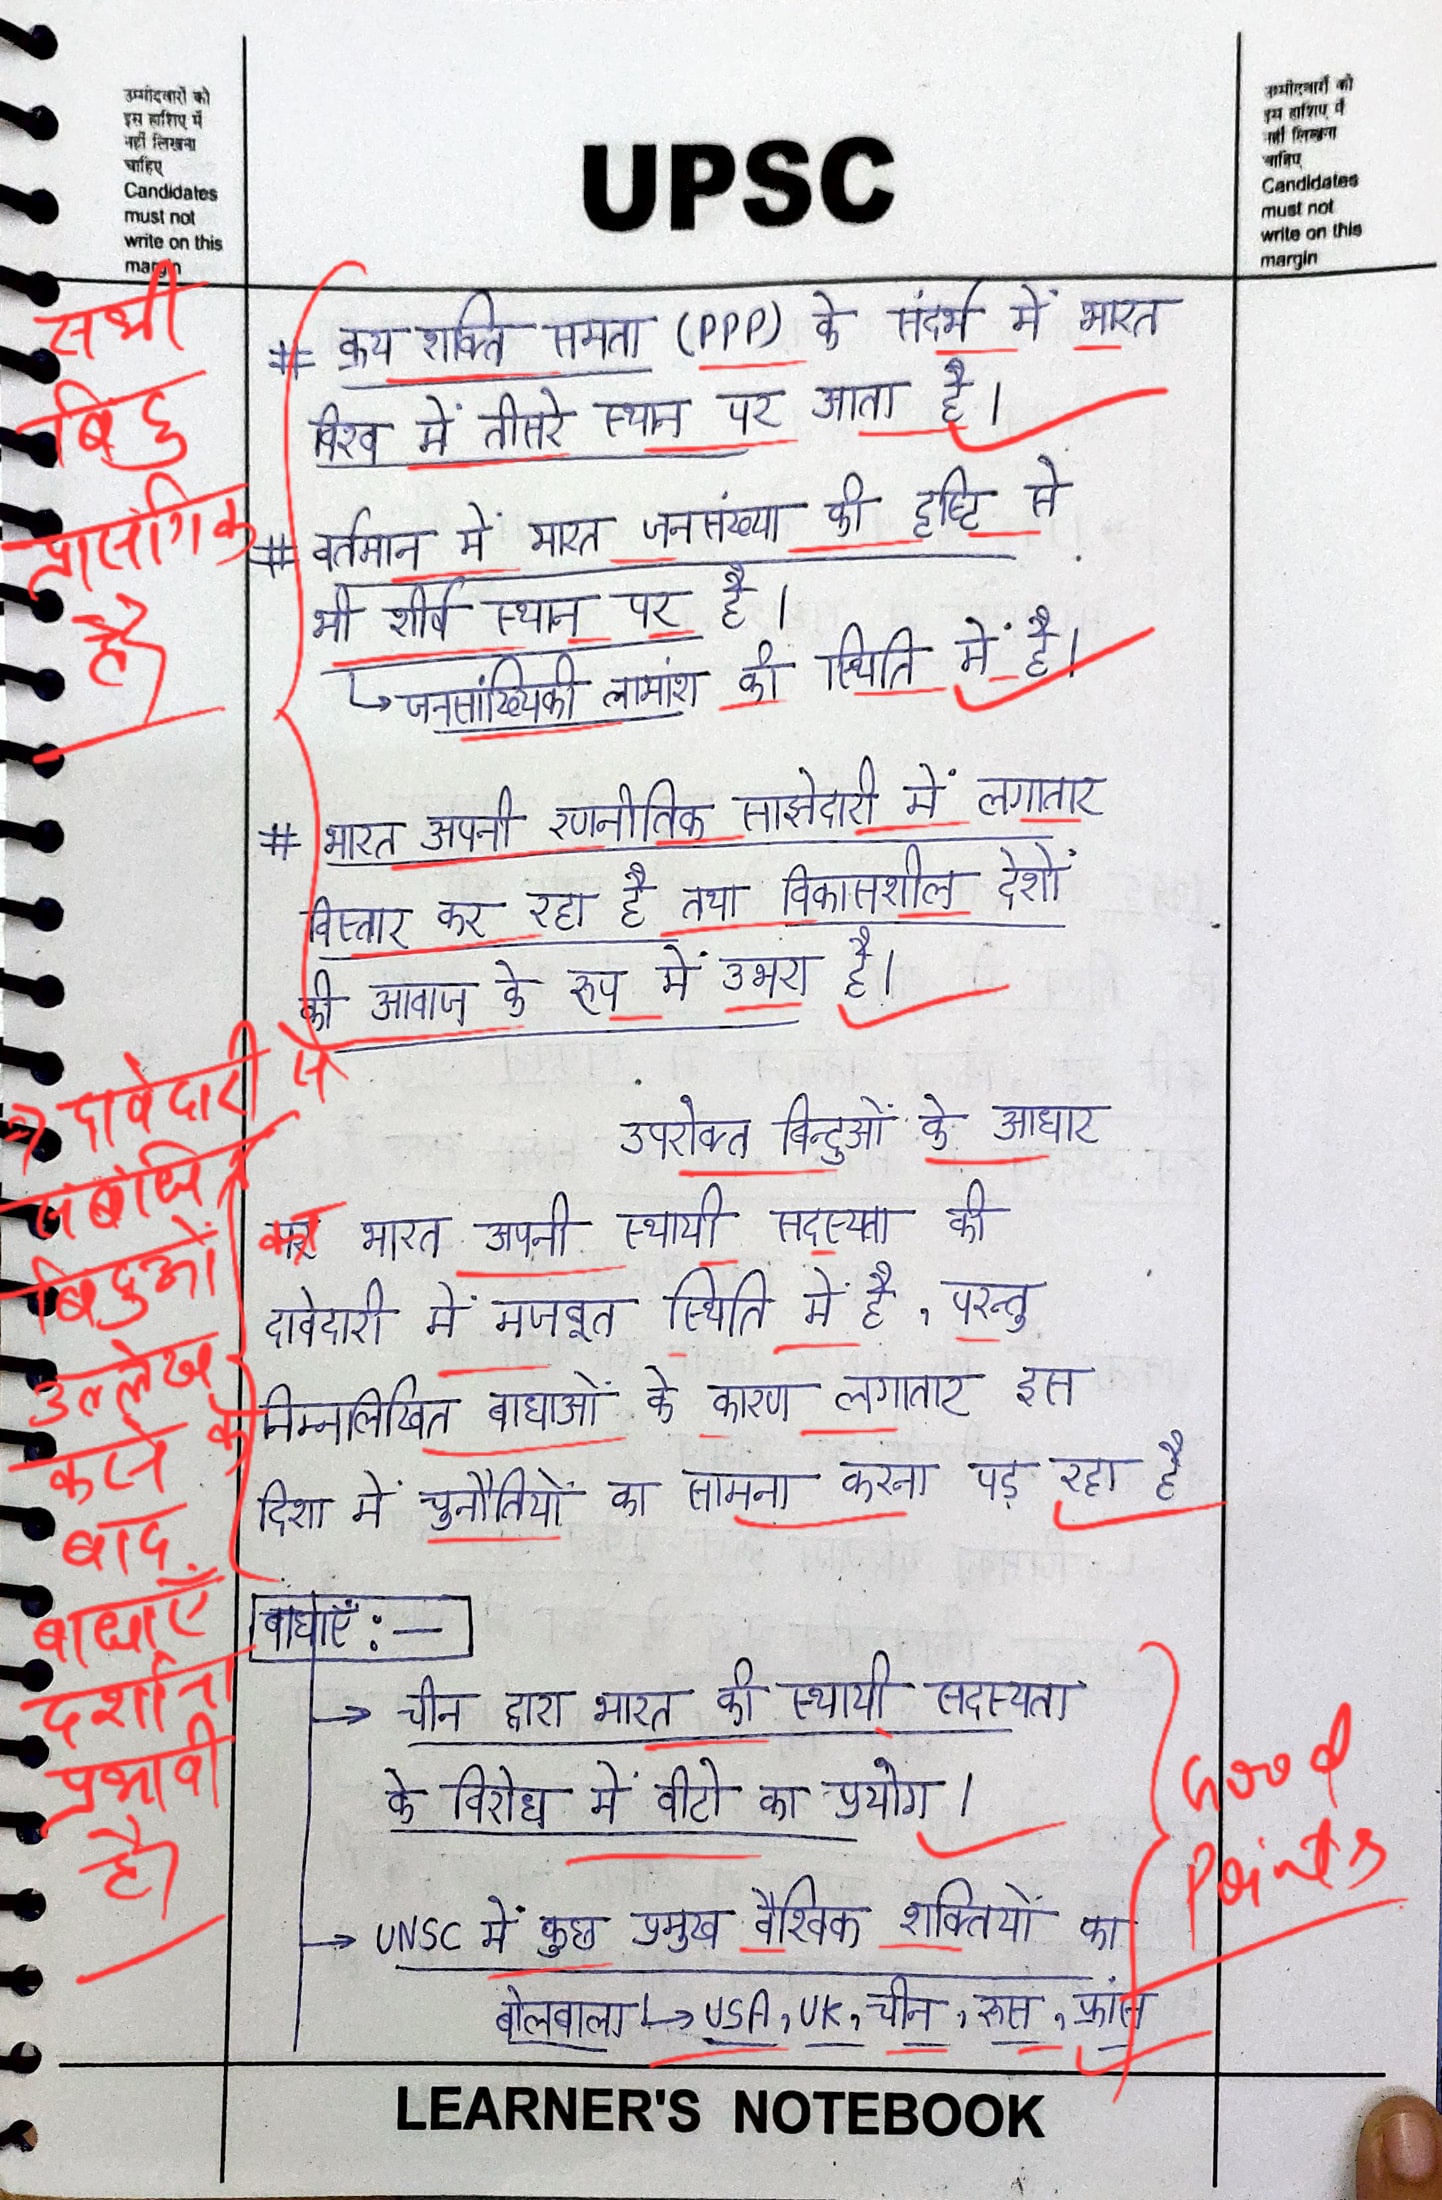 उम्मीदवारों को
इस हाशिए में
नहीं लिखना
चाहिए
Candidates
must not
write on this
margin
UPSC
उम्मीदवारों को
इस हाशिए में
नहीं लिखना
चाहिए
Candidates
must not
write on this
margin
# क्रय शक्ति समता (PPP) के संदर्भ में भारत
विश्व में तीसरे स्थान पर आता है।
# वर्तमान में भारत जनसंख्या की दृष्टि से
भी शीर्ष स्थान पर है।
↳ जनसांख्यिकी लाभांश की स्थिति में है।
# भारत अपनी रणनीतिक साझेदारी में लगातार
विस्तार कर रहा है तथा विकासशील देशों
की आवाज के रूप में उभरा है।
सभी
बिंदु
प्रासंगिक
है।
उपरोक्त बिन्दुओं के आधार
पर भारत अपनी स्थायी सदस्यता की
दावेदारी में मजबूत स्थिति में है, परन्तु
निम्नलिखित बाधाओं के कारण लगातार इस
दिशा में चुनौतियों का सामना करना पड़ रहा है
→ दावेदारी से
संबंधित
बिंदुओं
उल्लेख
करने के
बाद
बाधाएँ
दर्शाना
प्रभावी
है।
बाधाएँ :—
→ चीन द्वारा भारत की स्थायी सदस्यता
के विरोध में वीटो का प्रयोग।
→ UNSC में कुछ प्रमुख वैश्विक शक्तियों का
बोलबाला ↳ USA, UK, चीन, रूस, फ्रांस
Good
Points
LEARNER'S NOTEBOOK